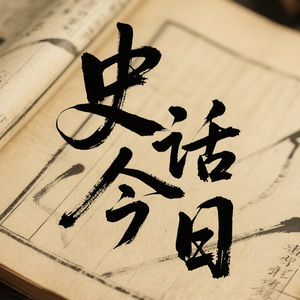 史话
今日